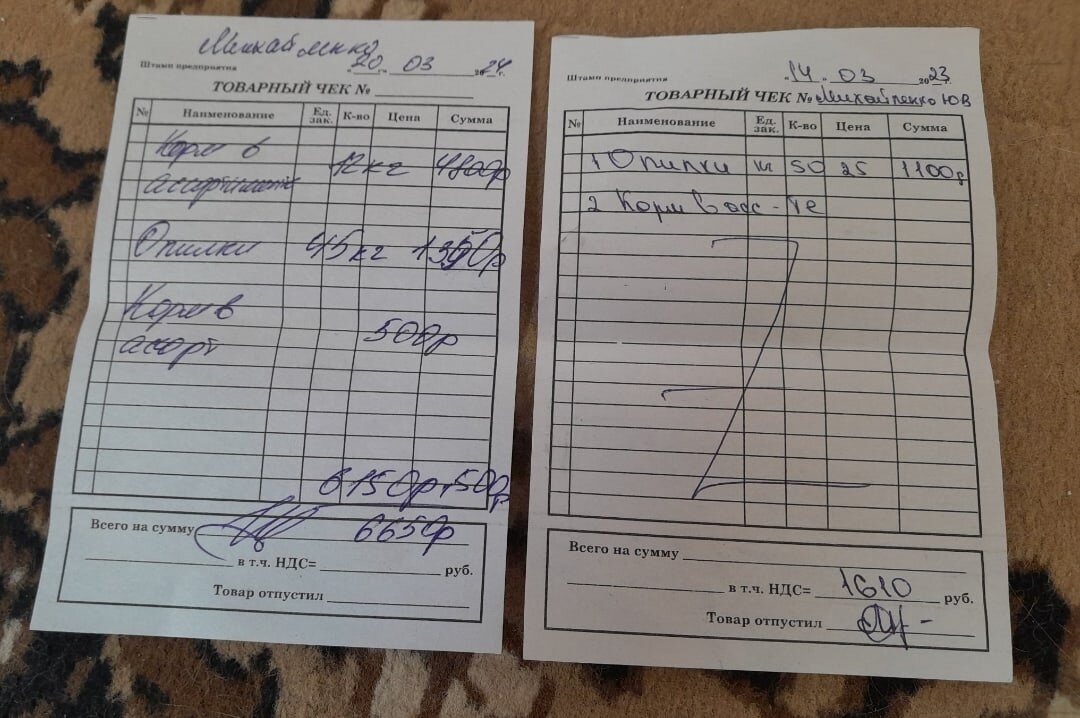 Михайленко
Штамп предприятия
"20" 03 2024г.
ТОВАРНЫЙ ЧЕК №
№ Наименование Ед. зак. К-во Цена Сумма
Корм в
ассортименте 12 кг 4800р
Опилки 45 кг 1350р
Корм в
асорт 500р
6150р+500р
Всего на сумму 6650р
в т.ч. НДС= руб.
Товар отпустил
Штамп предприятия
"14" 03 2023г.
ТОВАРНЫЙ ЧЕК № Михайленко ЮВ
№ Наименование Ед. зак. К-во Цена Сумма
1 Опилки кг 50 25 1100р
2 Корм в асс-те
Всего на сумму
в т.ч. НДС= 1610 руб.
Товар отпустил